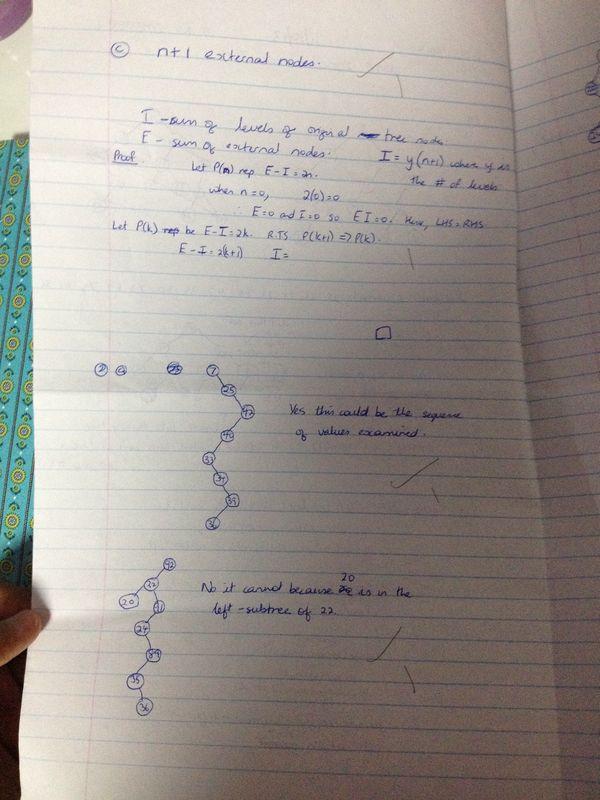 (c) n+1 external nodes.
I - sum of levels of original tree node
E - sum of external nodes. I = y(n+1) where y is
the # of levels
Proof Let P(n) rep E-I=2n.
when n=0, 2(0)=0
∴ E=0 and I=0 so EI=0. Hence, LHS=RHS
Let P(k) be E-I=2k. RTS P(k+1) => P(k).
E-I=2(k+1) I=
2) a 25 7
25
42
Yes this could be the sequence
40
of values examined.
33
34
39
36
92
22
20
No it cannot because 20 is in the
20 91
left-subtree of 22.
24
89
35
36